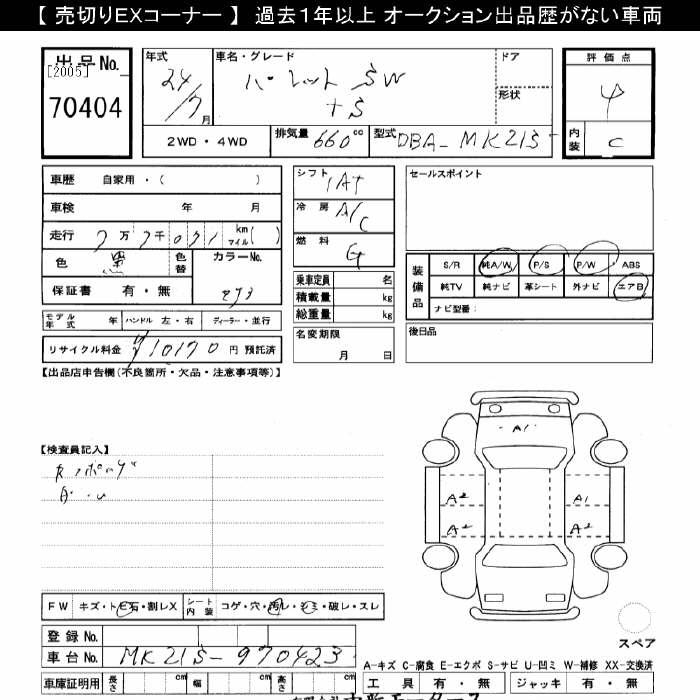 【 売切りEXコーナー 】 過去１年以上 オークション出品歴がない車両
出品No.
[2005]
70404
年式
24/7月
車名・グレード
パレットSW
TS
ドア
形状
評価点
4
内装
C
2WD・4WD
排気量 660 cc
型式 DBA-MK21S
車歴 自家用・( )
車検 年 月
走行 7万7千071 km マイル( )
色 黒
色替
カラーNo.
ZJ3
保証書 有・無
モデル年式 年
ハンドル 左・右
ディーラー・並行
リサイクル料金 ¥10170 円 預託済
シフト
IAT
冷房
A/C
燃料
G
乗車定員 名
積載量 kg
総重量 kg
名変期限
月 日
セールスポイント
装備品
S/R 純A/W P/S P/W ABS
純TV 純ナビ 革シート 外ナビ エアB
ナビ型番:
後日品
【出品店申告欄(不良箇所・欠品・注意事項等)】
【検査員記入】
A1
A2
A1
A2
A2
スペア
FW キズ・ト石・割レX
シート内装 コゲ・穴・汚レ・シミ・破レ・スレ
登録 No.
車台 No. MK21S-970423
A-キズ C-腐食 E-エクボ S-サビ U-凹ミ W-補修 XX-交換済
車庫証明用 長さ cm 幅 cm 高さ cm
工具 有・無 ジャッキ 有・無